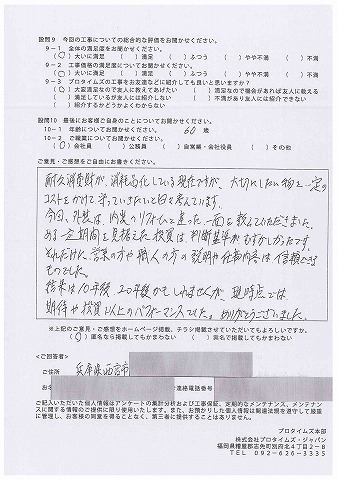 設問9 今回の工事についての総合的な評価をお聞かせください。
9-1 全体の満足度をお聞かせください。
(○)大いに満足 ( )満足 ( )ふつう ( )やや不満 ( )不満
9-2 工事価格の満足度についてお聞かせください。
(○)大いに満足 ( )満足 ( )ふつう ( )やや不満 ( )不満
9-3 プロタイムズの工事をお友達などに紹介しても良いと思いますか?
(○)大変満足なので友人に教えてあげたい ( )満足なので機会があれば友人に紹介したい
( )満足しているが友人には紹介しない ( )不満があり友人には紹介できない
( )紹介するかどうかよくわからない
設問10 最後にお客様ご自身のことについてお聞かせください。
10-1 年齢についてお聞かせください。 60 歳
10-2 ご職業についてお聞かせください。
(○)会社員 ( )公務員 ( )自営業・会社役員 ( )その他
ご意見・ご感想をご自由にお書きください。
耐久消費財が、消耗品化している現在ですが、大切にしたい物を一定の
コストをかけて守っていきたいと日々考えています。
今回、外装は内装のリフォームと違った一面を教えていただきました。
ある一定期間を見据えた投資は、判断基準がむずかしかったです。
それだけに、営業の方や職人の方の説明や仕事内容は信頼できる
ものでした。
結果は10年後、20年後かもしれませんが、現時点では
期待や投資以上のパフォーマンスでした。ありがとうございました。
※上記のご意見・ご感想をホームページ掲載、チラシ掲載させていただいてもよろしいですか。
(○)匿名なら掲載してもかまわない ( )実名で掲載してもかまわない
<ご回答者>
ご住所 兵庫県西宮市
お名
連絡電話番号
ご記入いただいた個人情報はアンケートの集計分析および工事保証、定期的なメンテナンス、メンテナン
スに関する情報のご提供に限り使用いたします。また、お預かりした個人情報は関連法規を遵守して厳重
に管理し、お客様の同意を得ることなく、第三者に提供することはありません。
プロタイムズ本部
株式会社プロタイムズ・ジャパン
福岡県糟屋郡志免町別府北4丁目2-8
TEL 092-626-3335